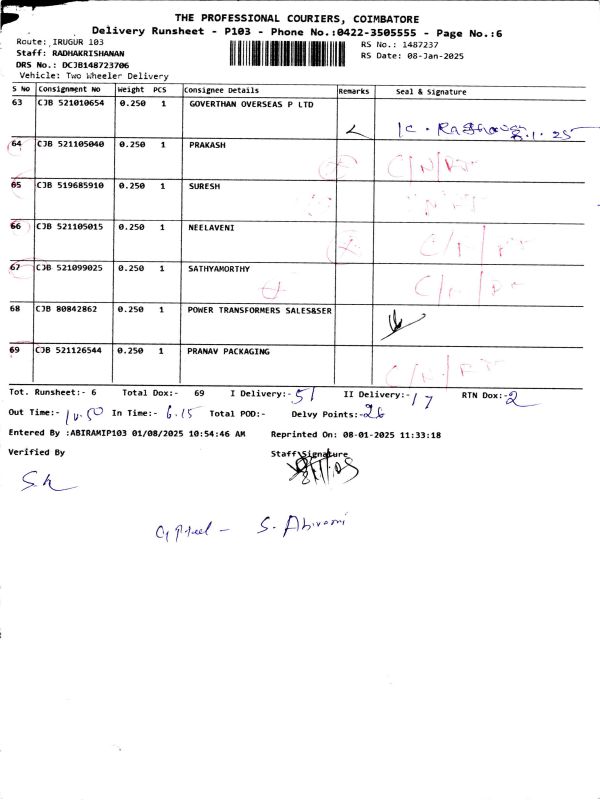 THE PROFESSIONAL COURIERS, COIMBATORE
Delivery Runsheet - P103 - Phone No.:0422-3505555 - Page No.:6
Route: IRUGUR 103
RS No.: 1487237
Staff: RADHAKRISHANAN
RS Date: 08-Jan-2025
DRS No.: DCJB148723706
Vehicle: Two Wheeler Delivery
S No Consignment No Weight PCS Consignee Details Remarks Seal & Signature
63 CJB 521010654 0.250 1 GOVERTHAN OVERSEAS P LTD
8.1.25
64 CJB 521105040 0.250 1 PRAKASH
65 CJB 519685910 0.250 1 SURESH
66 CJB 521105015 0.250 1 NEELAVENI
67 CJB 521099025 0.250 1 SATHYAMORTHY
68 CJB 80842862 0.250 1 POWER TRANSFORMERS SALES&SER
69 CJB 521126544 0.250 1 PRANAV PACKAGING
Tot. Runsheet:- 6 Total Dox:- 69 I Delivery:- 51 II Delivery:- 17 RTN Dox:- 2
Out Time:- 10.50 In Time:- 6.15 Total POD:- Delvy Points:- 26
Entered By :ABIRAMIP103 01/08/2025 10:54:46 AM Reprinted On: 08-01-2025 11:33:18
Verified By Staff Signature
S. Abirami